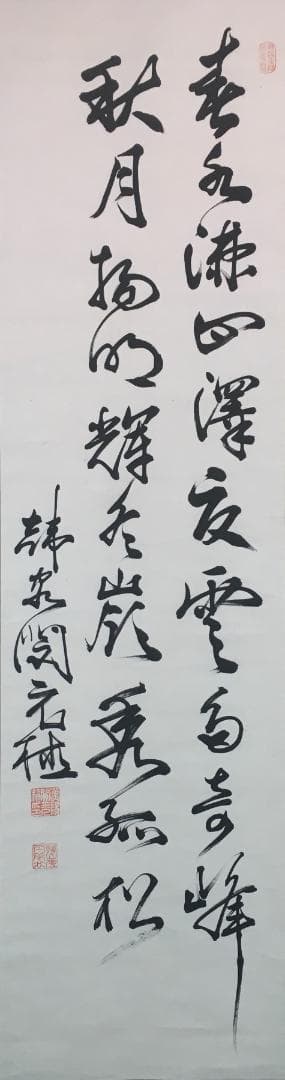 春水滿四澤夏雲多奇峰
秋月揚明輝冬嶺秀孤松
韓客閔元植